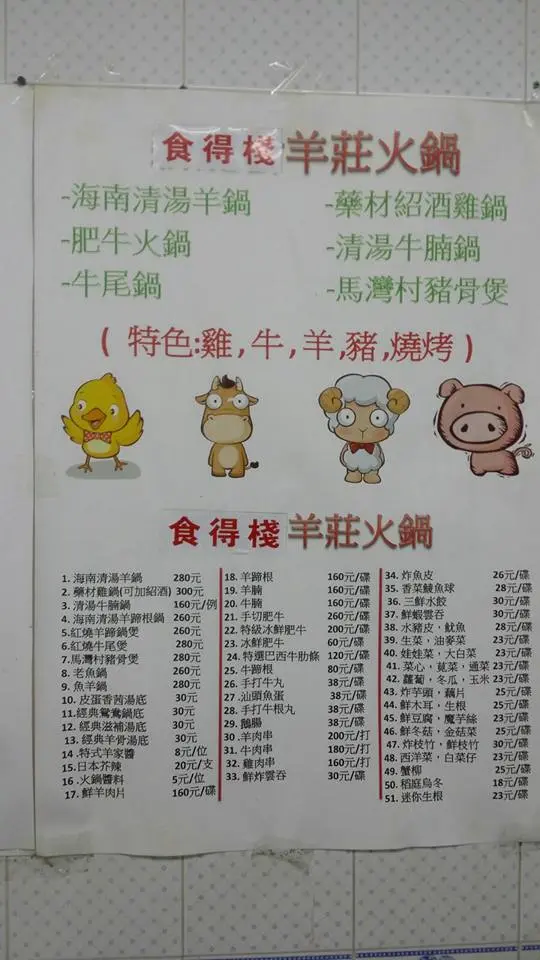 食得棧 羊莊火鍋
-海南清湯羊鍋
-肥牛火鍋
-牛尾鍋
-藥材紹酒雞鍋
-清湯牛腩鍋
-馬灣村豬骨煲
( 特色:雞,牛,羊,豬,燒烤 )
食得棧 羊莊火鍋
1. 海南清湯羊鍋 280元
2. 藥材雞鍋(可加紹酒) 300元
3. 清湯牛腩鍋 160元/例
4. 海南清湯羊蹄根鍋 260元
5.紅燒羊蹄鍋煲 260元
6.紅燒牛尾煲 280元
7.馬灣村豬骨煲 280元
8. 老魚鍋 260元
9. 魚羊鍋 280元
10. 皮蛋香茜湯底 30元
11.經典鴛鴦鍋底 30元
12. 經典滋補湯底 30元
13. 經典羊骨湯底 30元
14 .特式羊家醬 8元/位
15.日本芥辣 20元/支
16 .火鍋醬料 5元/位
17. 鮮羊肉片 160元/碟
18. 羊蹄根 160元/碟
19. 羊腩 160元/碟
20. 牛腩 160元/碟
21. 手切肥牛 260元/碟
22. 特級冰鮮肥牛 200元/碟
23. 冰鮮肥牛 60元/碟
24. 特選巴西牛肋條 120元/碟
25. 牛蹄根 80元/碟
26. 手打牛丸 38元/碟
27. 汕頭魚蛋 38元/碟
28. 手打牛根丸 38元/碟
29. 鵝腸 38元/碟
30. 羊肉串 200元/打
31. 牛肉串 180元/打
32. 雞肉串 160元/打
33. 鮮炸雲吞 30元/碟
34. 炸魚皮 26元/碟
35. 香菜鯪魚球 28元/碟
36. 三鮮水餃 30元/碟
37. 鮮蝦雲吞 30元/碟
38. 水豬皮，魷魚 28元/碟
39. 生菜，油麥菜 23元/碟
40. 娃娃菜，大白菜 23元/碟
41. 菜心，莧菜，通菜 23元/碟
42. 蘿蔔，冬瓜，玉米 23元/碟
43. 炸芋頭，藕片 25元/碟
44. 鮮木耳，生根 25元/碟
45. 鮮豆腐，魔芋絲 23元/碟
46. 鮮冬菇，金菇菜 25元/碟
47. 炸枝竹，鮮枝竹 30元/碟
48. 西洋菜，白菜仔 23元/碟
49. 蟹柳 25元/碟
50. 稻庭烏冬 18元/碟
51. 迷你生根 23元/碟